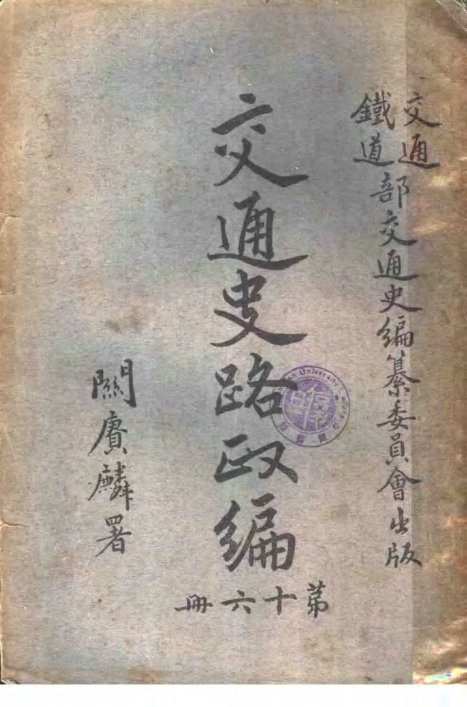 交通
鐵道
部交通史編纂委員會出版
交通史路政編
第十六冊
關賡麟署